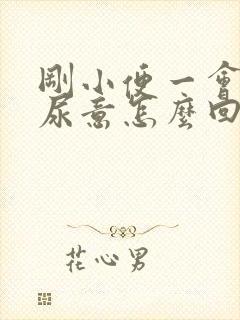 剛小便一會
尿意怎麼回
花心男